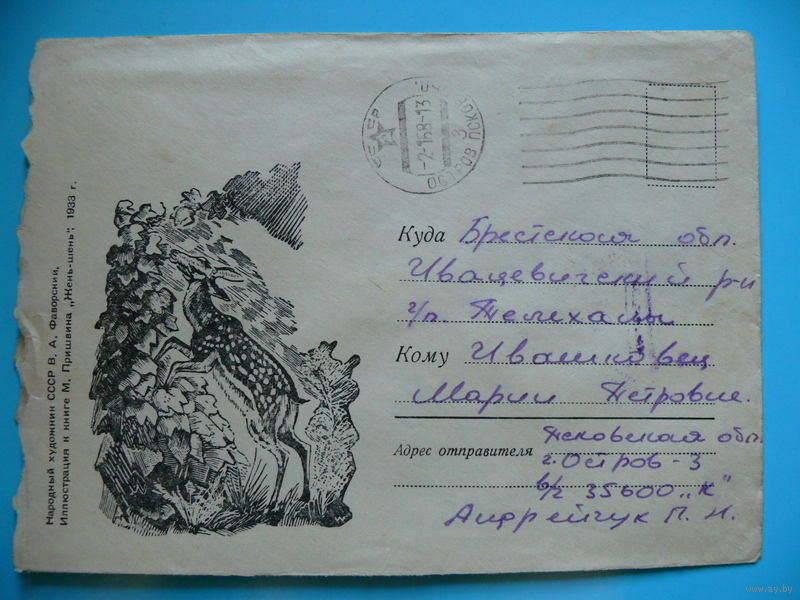 Народный художник СССР В. А. Фаворский.
Иллюстрация к книге М. Пришвина „Жень-шень“; 1933 г.
СССР
-2-1 68-13
ОСТРОВ ПСКОВ
3
Куда Брестская обл.
Ивацевичский р-н
г/п. Телеханы
Кому Ивашковец
Марии Петровне.
Адрес отправителя
Псковская обл.
г. Остров-3
в/ч 35600 „К“
Андрейчук П. Н.
www.ay.by